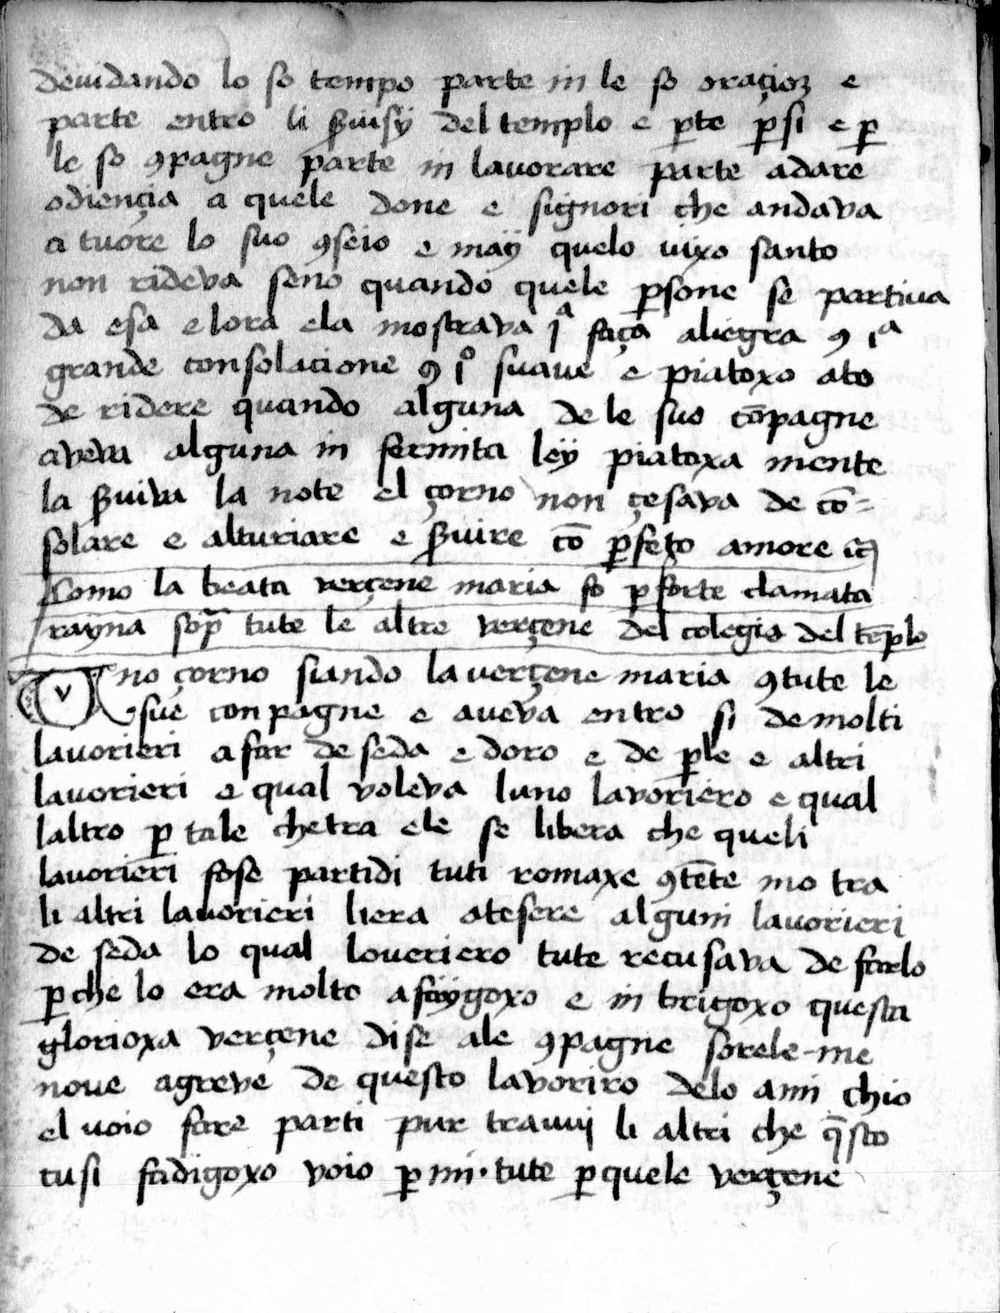 deuidando lo so tempo parte in le so oraçioꝫ e
parte entro li ẜuisÿ del templo e ꝑte ꝑ si e ꝑ
le so ꝯpagne parte in lauorare parte adare
odiençia a quele done e signori che andava
a tuore lo suo ꝯseio e maÿ quelo uixo santo
non rideva seno quando quele ꝑsone se partiua
da esa e lora ela mostrava iᵃ faça aliegra ꝯ iᵃ
grande consolacione ꝯ iº suaue e piatoxo ato
de ridere quando alguna de le suo cōpagne
aveva alguna in fermita leÿ piatoxa mente
la ẜuiva la note el çorno non çesava de cō=
solare e alturiare e ẜuire cō ꝑfeto amore
Como la beata verçene maria fo ꝑ sorte clamata
rayna sopᷓ tute le altre verçene del colegio del tēplo
Vno çorno siando la verçene maria ꝯtute le
sue conpagne e aueva entro si de molti
lauorieri a far de seda e doro e de ꝑle e altri
lauorieri e qual voleva luno lavoriero e qual
laltro ꝑ tale chetra ele se libera che queli
lauorieri fose partidi tuti romaxe ꝯtēte mo tra
li altri lauorieri liera atesere alguni lauorieri
de seda lo qual loueriero tute recusava de farlo
ꝑche lo era molto afaÿgoxo e in brigoxo questa
glorioxa verçene dise ale ꝯpagne sorele me
noue agreve de questo lavoriro delo ami chio
el uoio fare parti pur trauuj li altri che q̄sto
tusi fadigoxo voio ꝑ mi · tute ꝑ quele verçene